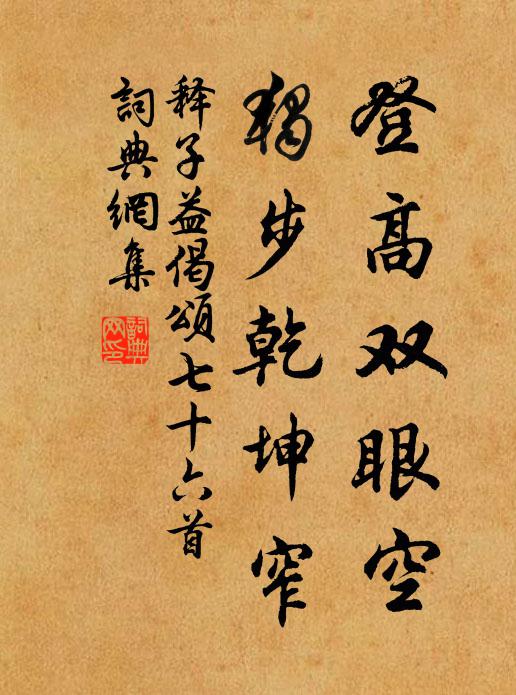 登高双眼空
獨步乾坤窄
释子益偈頌七十六首
詞典網集
詞典網印